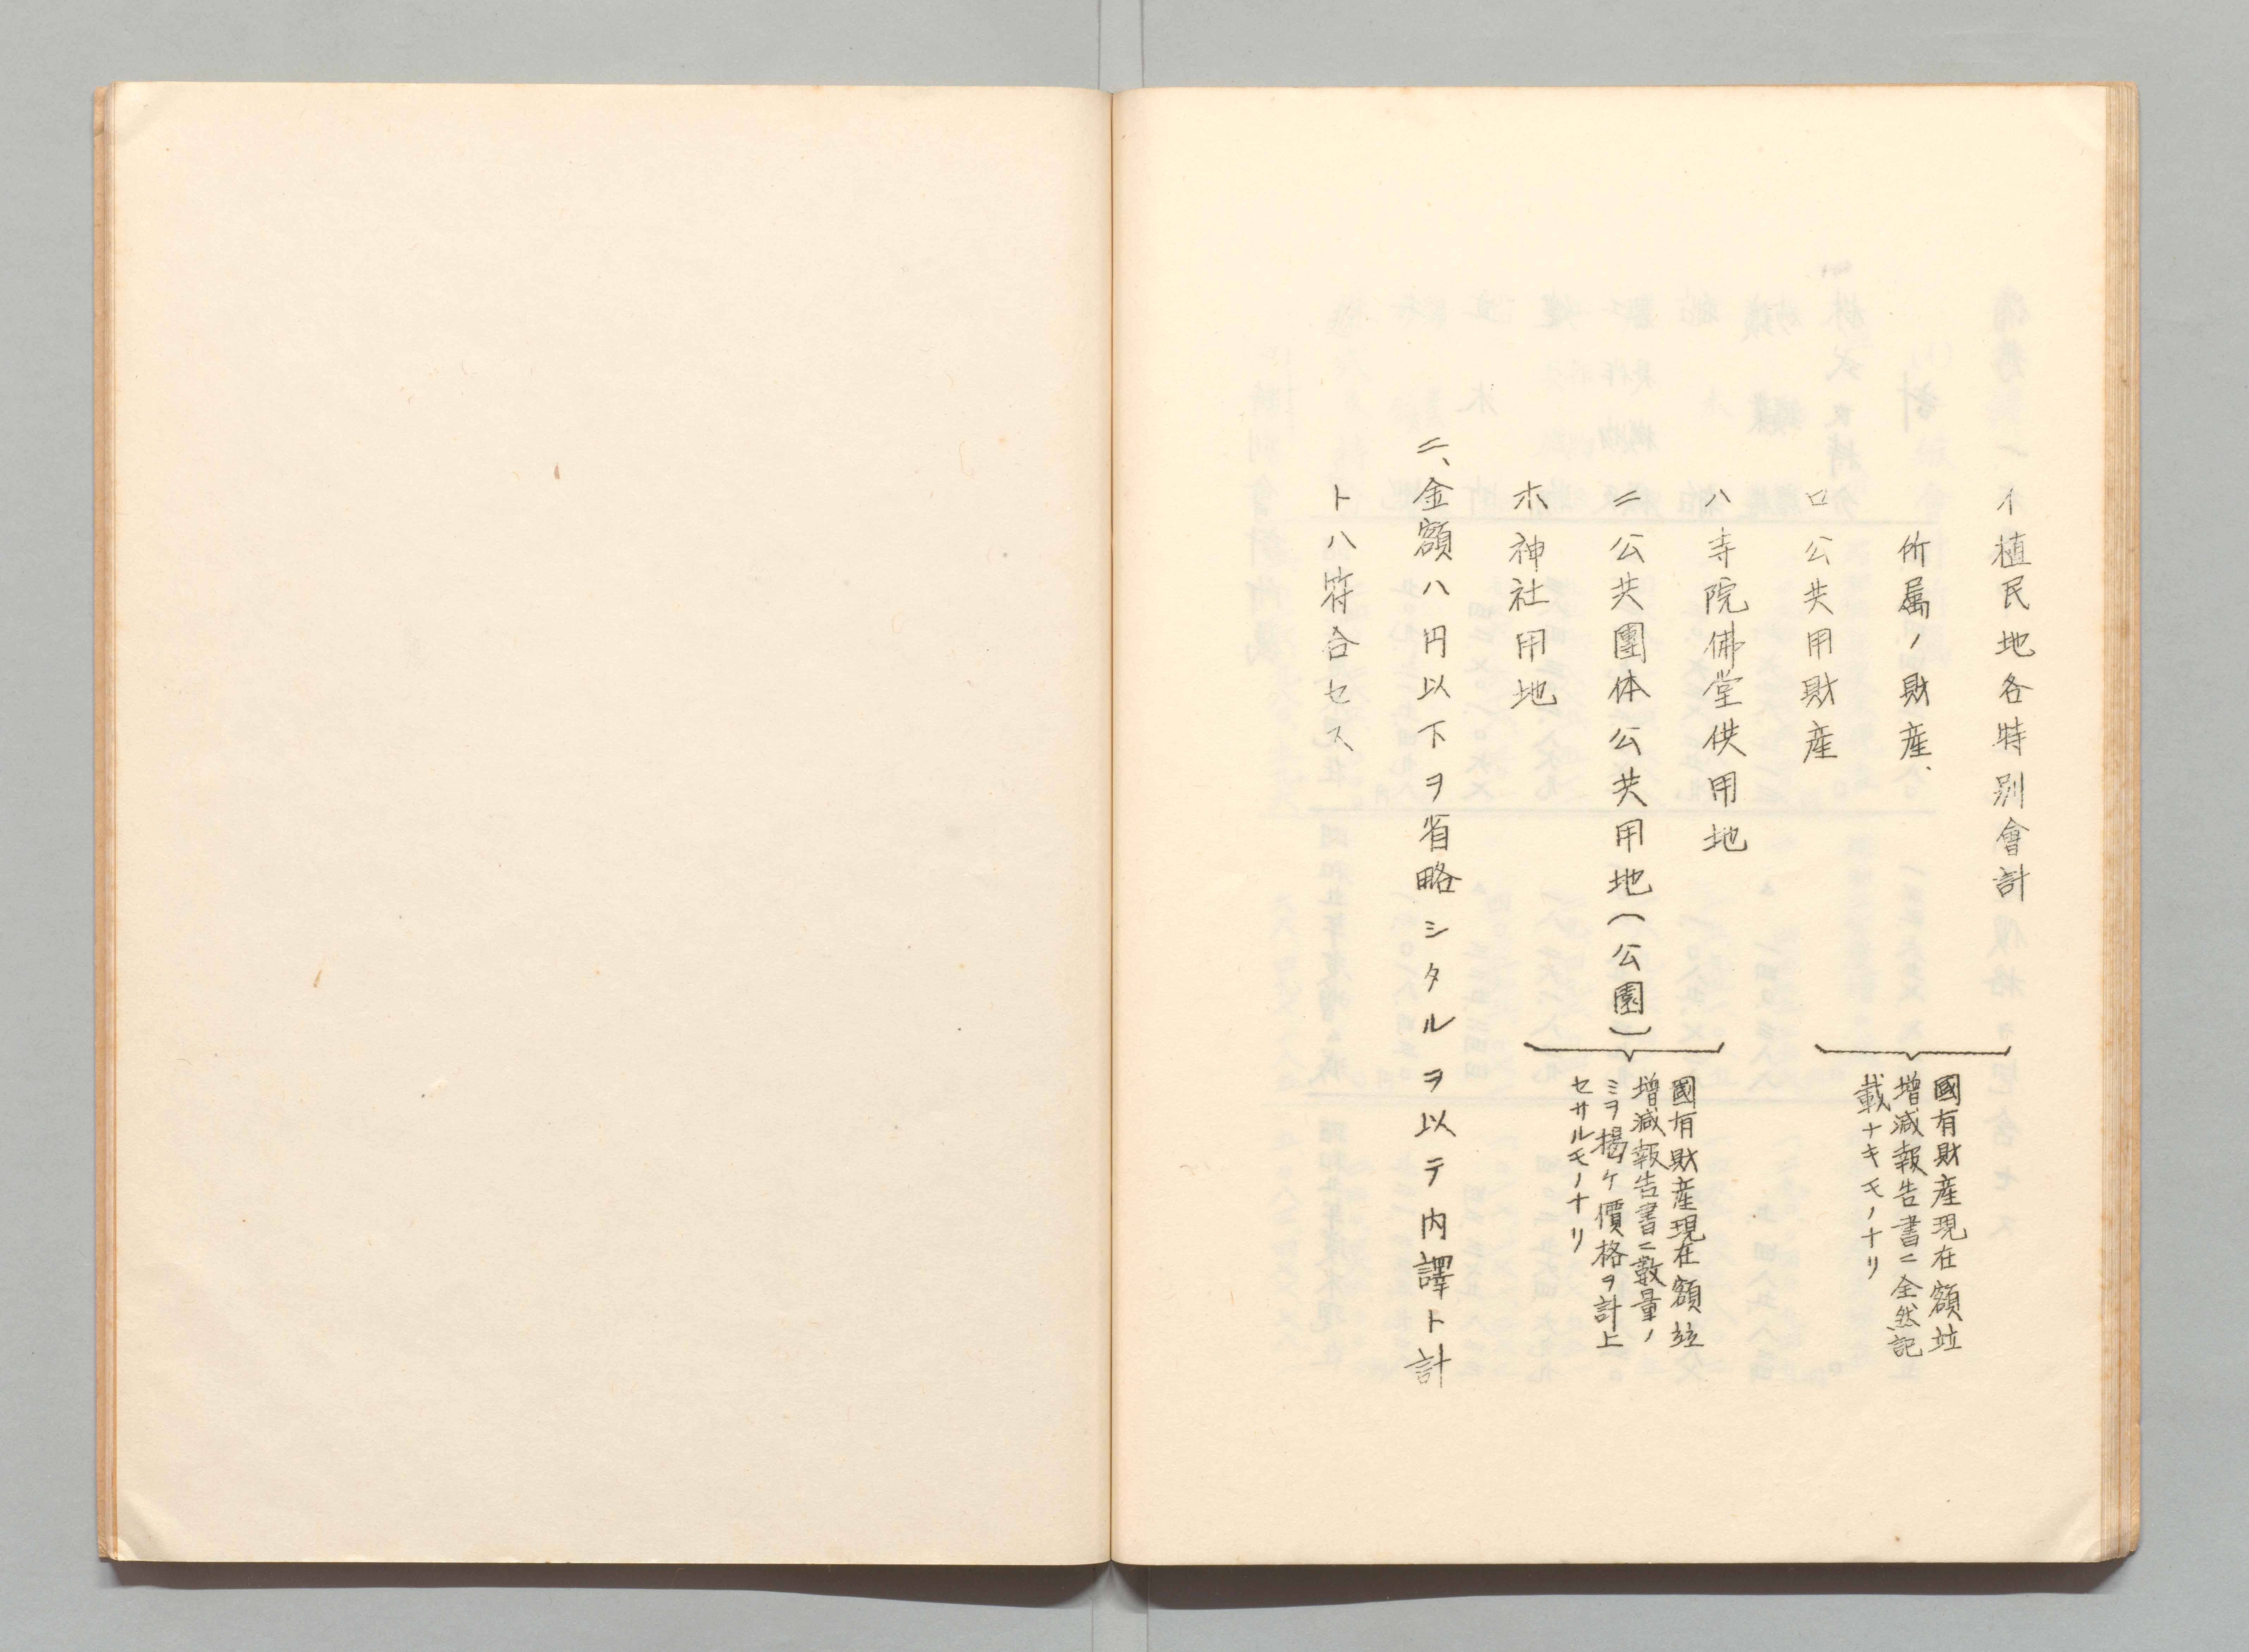 イ植民地各特別會計
所属ノ財産、
ロ公共用財産
國有財産現在額竝
増減報告書ニ全然記
載ナキモノナリ
ハ寺院佛堂供用地
ニ公共團体公共用地(公園)
ホ神社用地
國有財産現在額竝
増減報告書ニ数量ノ
ミヲ掲ケ價格ヲ計上
セサルモノナリ
二、金額ハ円以下ヲ省略シタルヲ以テ内譯ト計
トハ符合セス